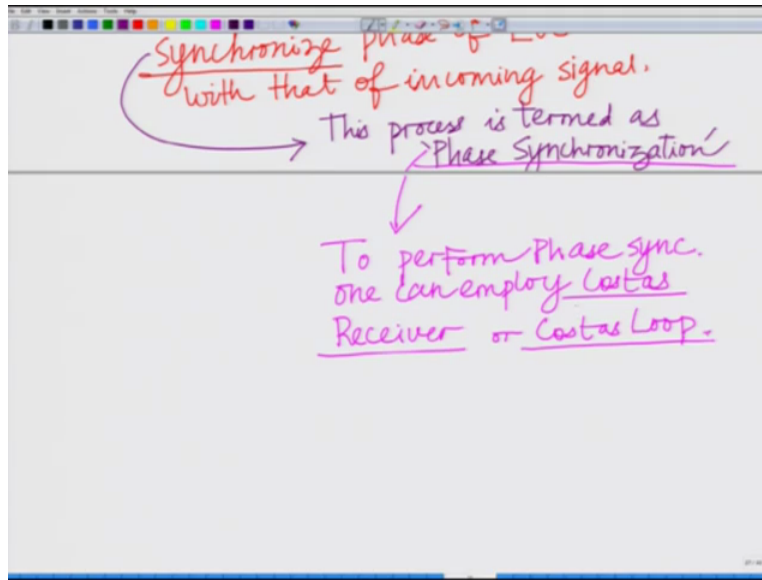 synchronize phase of
with that of incoming signal.
This process is termed as
'Phase Synchronization'
To perform Phase sync.
one can employ Costas
Receiver or Costas Loop.